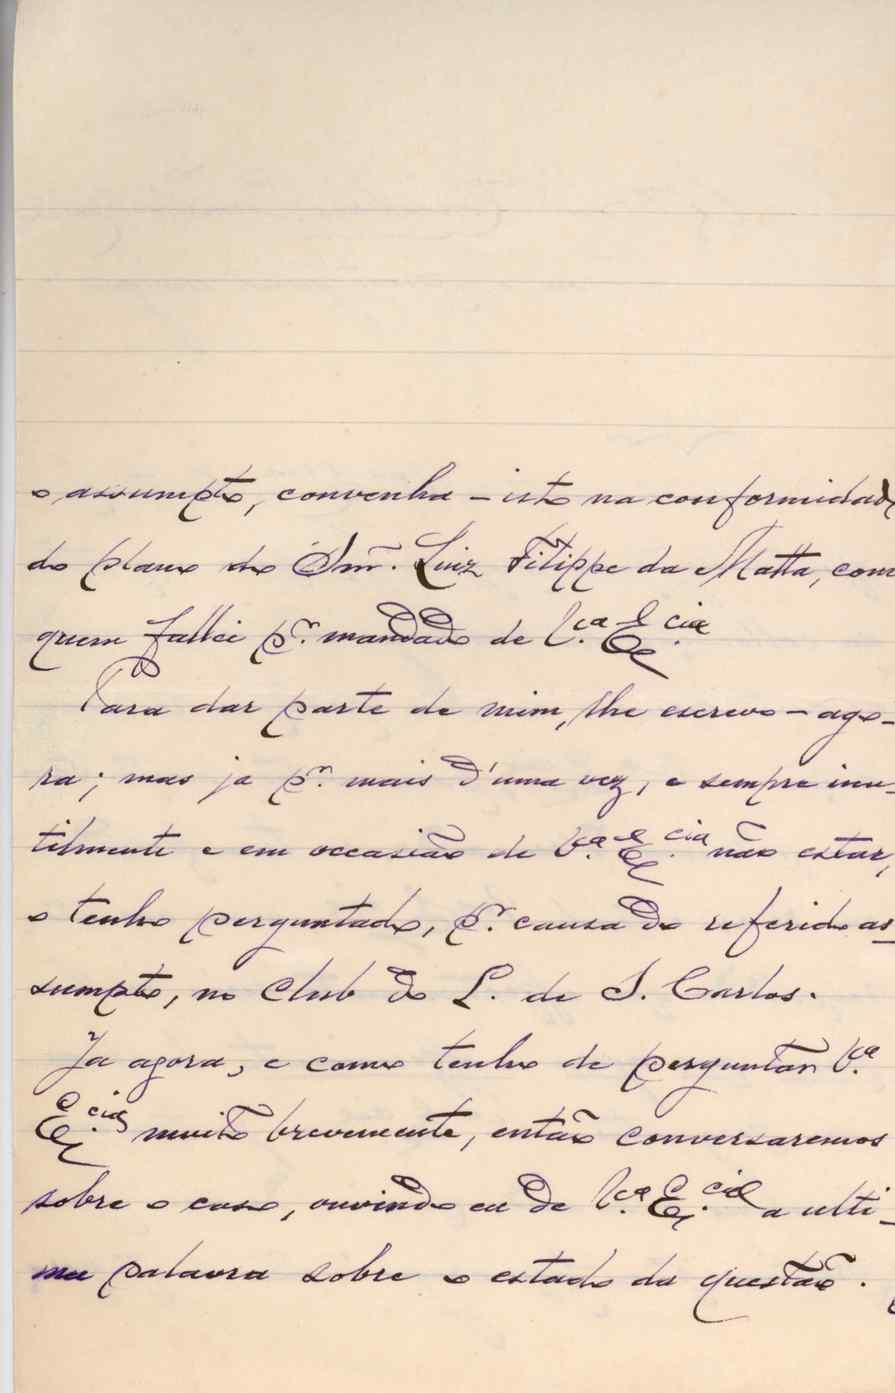 o assumpto, convenha - isto na conformidade
do plano do Snr. Luiz Filippe da Matta, com
quem fallei pr. mandado de V.ca E.cia
Para dar parte de mim, lhe escrevo - ago-
ra; mas ja pr. mais d'uma vez, e sempre inu-
tilmente e em occasião de V.ca E.cia não estar,
o tenho perguntado, pr. causa do referido as-
sumpto, no Club do L. de S. Carlos.
Ja agora, e como tenho de perguntar V.ca
E.cia muito brevemente, então conversaremos
sobre o caso, ouvindo eu de V.ca E.cia a ulti-
ma palavra sobre o estado da questão.